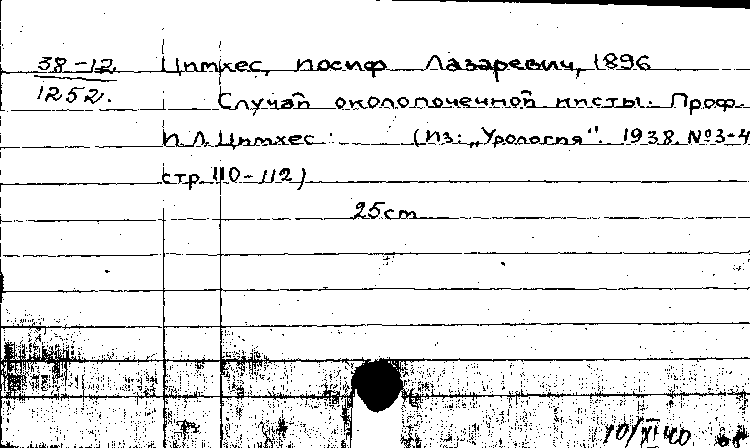 38-12
1252.
Цитхес, Иосиф Лазаревич, 1896
Случай околопочечной кисты. Проф.
И. Л. Цитхес. (Из: „Урология“. 1938. №3-4
стр. 110-112)
25cm
10/XI 40.